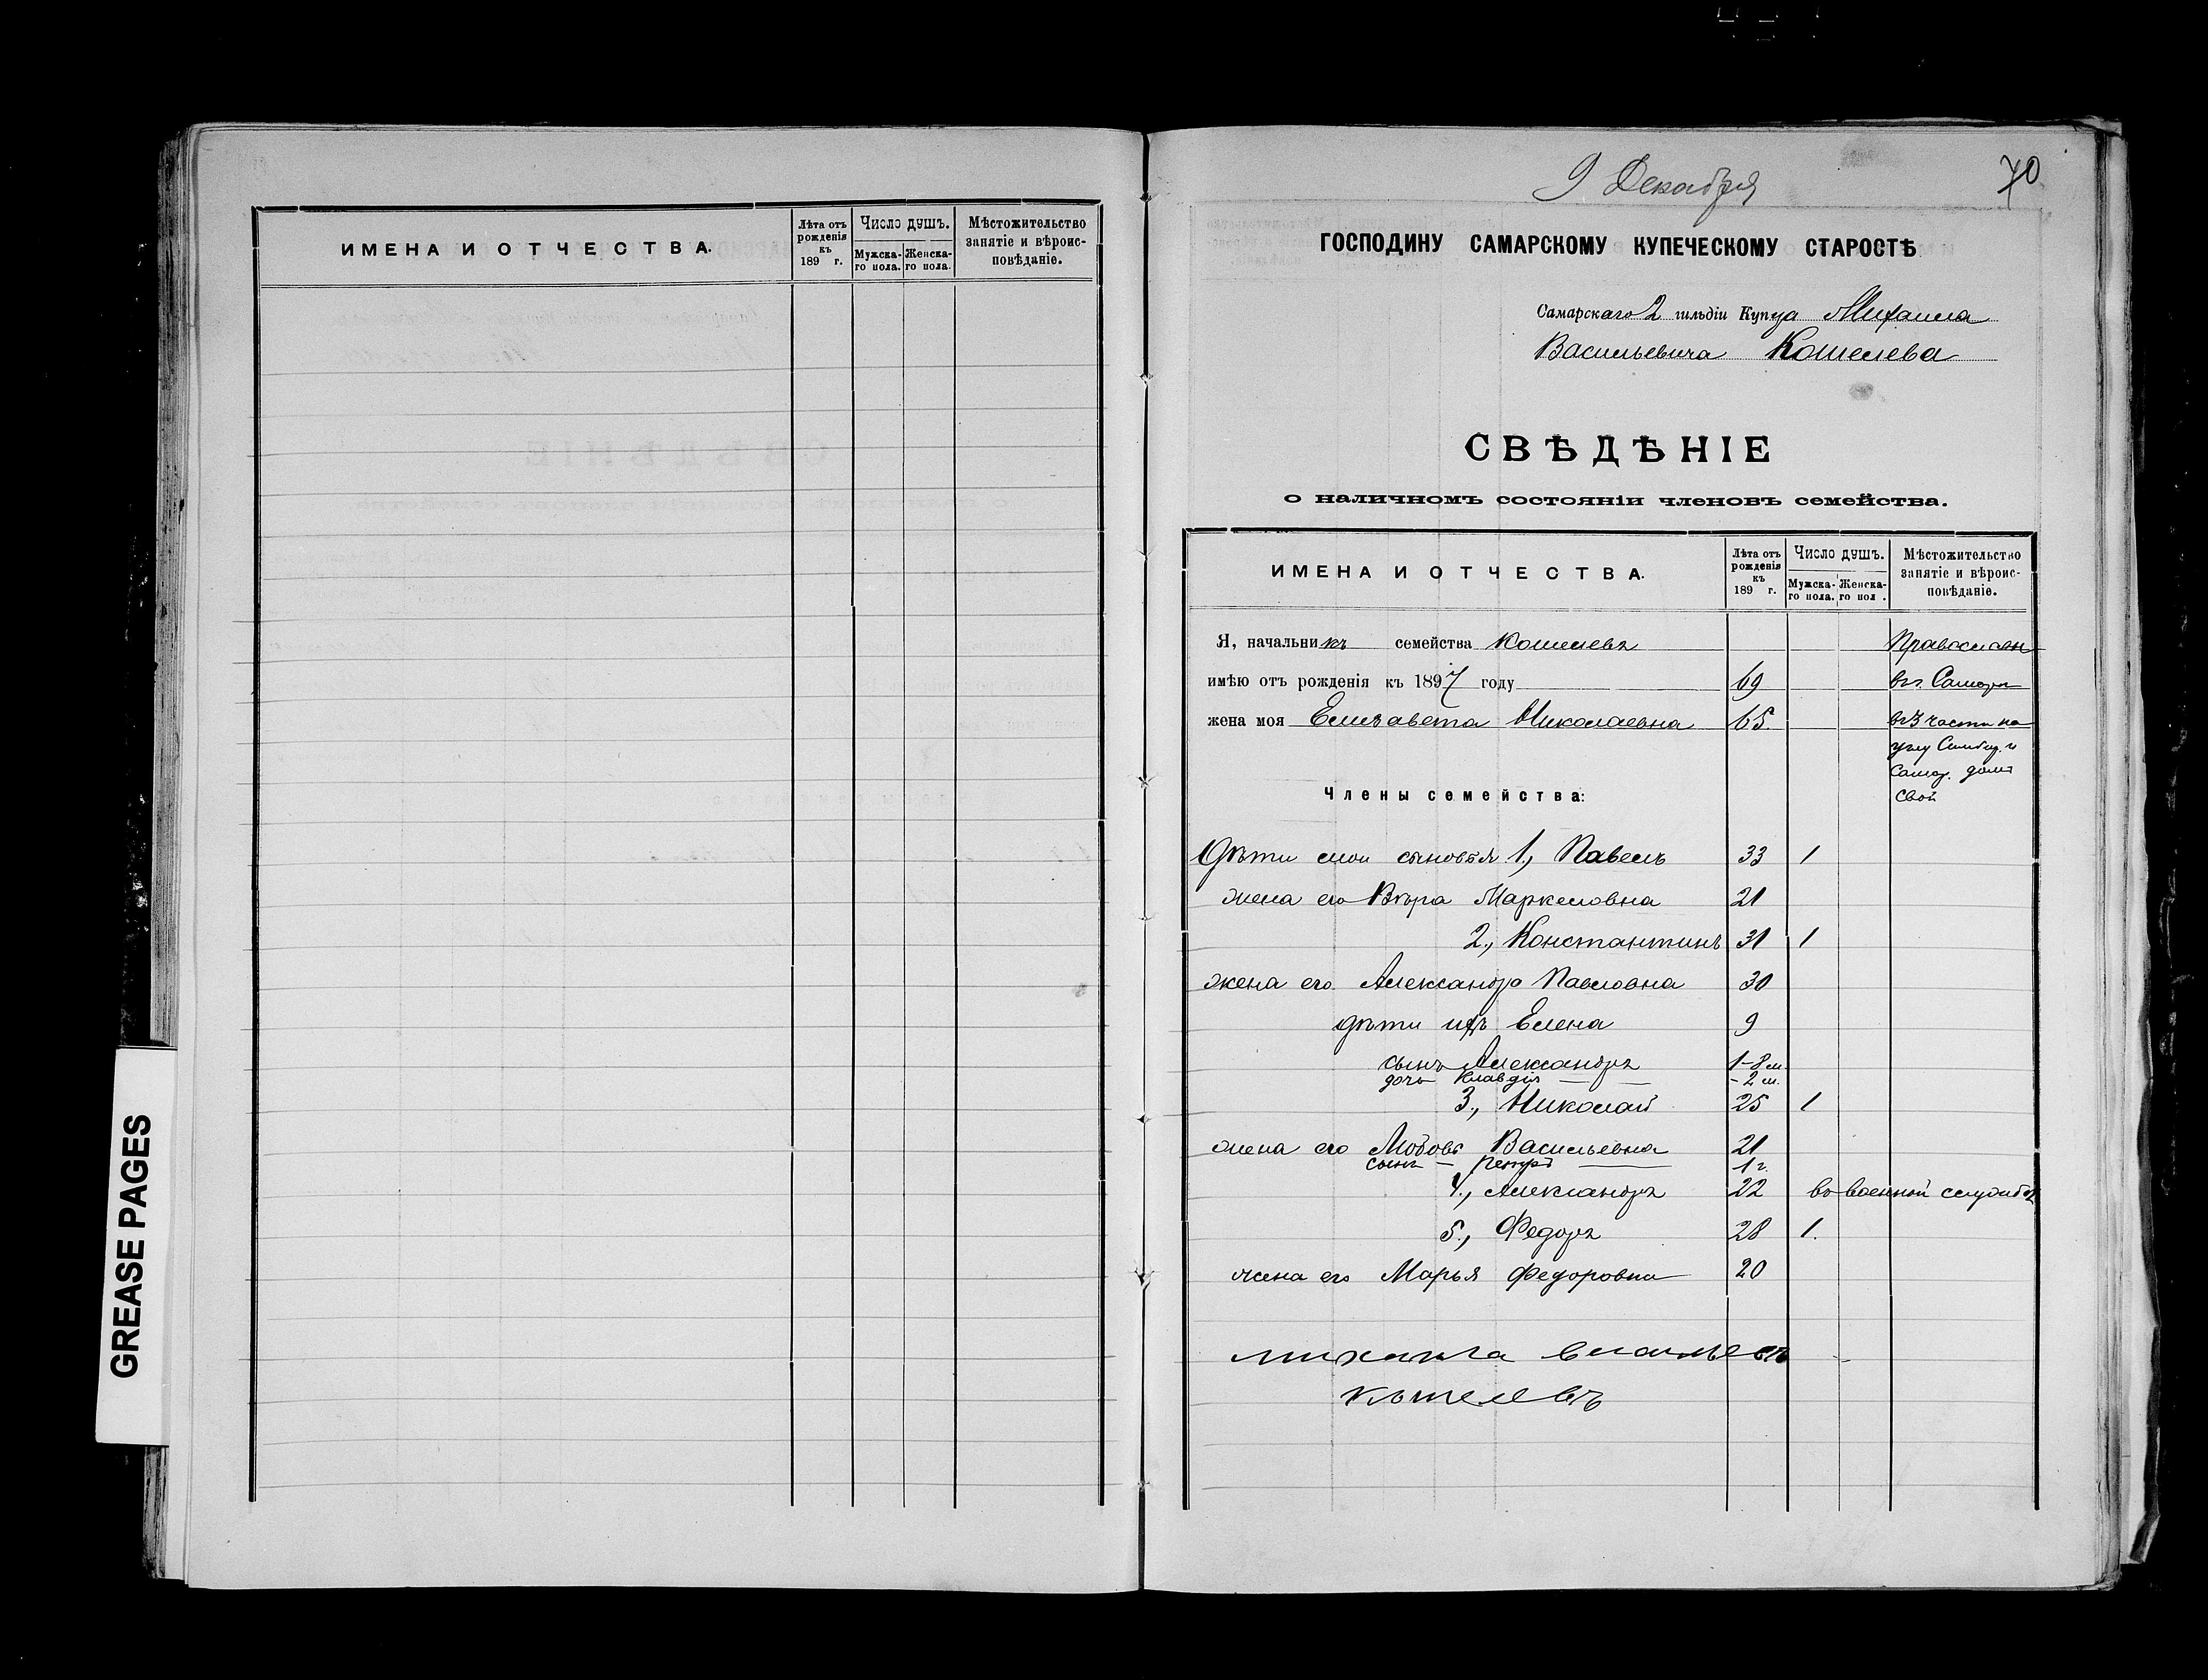 GREASE PAGES
ИМЕНА И ОТЧЕСТВА.
Лѣта отъ
рожденія
къ
189 г.
Число душъ.
Мужска-
го пола.
Женска-
го пола.
Мѣстожительство
занятіе и вѣроис-
повѣданіе.
9 Декабря
70
ГОСПОДИНУ САМАРСКОМУ КУПЕЧЕСКОМУ СТАРОСТѢ
Самарскаго 2 гильдіи Купца Михаила
Васильевича Кошелева
СВѢДѢНІЕ
о наличномъ состояніи членовъ семейства.
ИМЕНА И ОТЧЕСТВА.
Лѣта отъ
рожденія
къ
189 г.
Число душъ.
Мужска-
го пола.
Женска-
го пол .
Мѣстожительство
занятіе и вѣроис-
повѣданіе.
Я, начальникъ семейства Кошелевъ Православн
имѣю отъ рожденія къ 1897 году 69 въ г. Самарѣ
жена моя Елизавета Николаевна 65. въ 3 части на
углу Симбир. и
Самар. домъ
свой
Члены семейства:
Дѣти мои сыновья 1, Павелъ 33 1
жена его Вѣра Маркеловна 21
2., Константинъ 31 1
жена его Александра Павловна 30
дѣти ихъ Елена 9
сынъ Александръ 1-8 м.
дочь Клавдія - 2 м.
3., Николай 25 1
жена его Любовь Васильевна 21
сынъ - Петръ 1 г.
4., Александръ 22 во военной службѣ
5., Федоръ 28 1.
жена его Марья Федоровна 20
кошелевъ